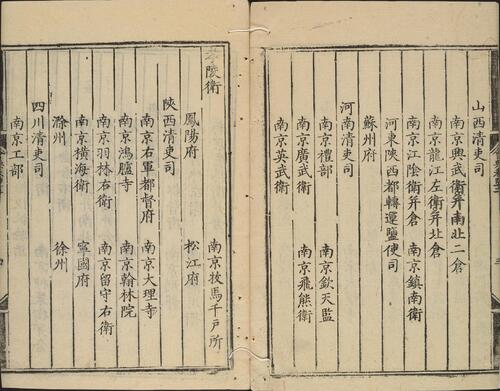 山西清吏司
南京興武衛并南北二倉
南京龍江左衛并北倉
南京江陰衛并倉 南京鎮南衛
河東陝西都轉運鹽使司
蘇州府
河南清吏司
南京禮部 南京欽天監
南京廣武衛 南京飛熊衛
南京英武衛
孝陵衛 南京牧馬千戶所
鳳陽府 松江府
陝西清吏司
南京右軍都督府 南京大理寺
南京鴻臚寺 南京翰林院
南京羽林右衛 南京留守右衛
南京橫海衛 寧國府
滁州 徐州
四川清吏司
南京工部